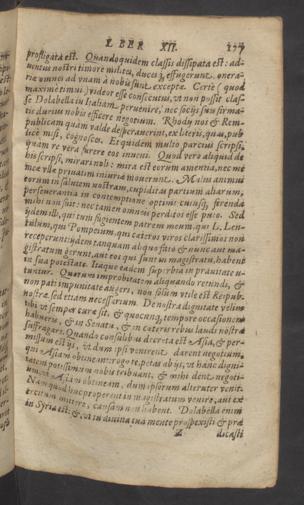 LIBER XII. 177
profligata est. Quandoquidem classis dissipata est: ad-
uentus nostri timore milites, duces, effugerunt: onera-
riæ omnes ad vnam à nobis sunt exceptæ. Certè (quod
maxime timui) videor esse consecutus, vt non possit clas-
se Dolabella in Italiam peruenire, nec suis sociis firma-
tis durius nobis efficere negotium. Rhodij nos & Rem-
publicam quàm valde desperauerint, ex literis, quas pub-
licè misi, cognosces. Et quidem multò parcius scripsi,
quàm re vera furere eos inueni. Quod verò aliquid de
his scripsi, mirari noli: mira est eorum amentia, nec me
meæ vllæ priuatim iniuriæ mouerunt. Malus animus
eorum in salutem nostram, cupiditas partium aliarum,
perseuerantia in contemptione optimi cuiusq́; ferenda
mihi non fuit: nec tamen omnes perditos esse puto. Sed
ijdem illi, qui tum fugientem patrem meum, qui L. Len-
tulum, qui Pompeium, qui cæteros viros clarissimos non
receperunt, ijdem tanquam aliquo fato & nunc aut ma-
gistratum gerunt, aut eos qui sunt in magistratu, habent
in sua potestate. Itaque eadem superbia in prauitate v-
tuntur. Quorum improbitatem aliquando retundi, &
non pati impunitate augeri, non solùm vtile est Reipub.
nostræ, sed etiam necessarium. De nostra dignitate velim
tibi vt semper curæ sit, & quocunq́; tempore occasionem
habueris, & in Senatu, & in cæteris rebus laudi nostræ
suffragare. Quando consulibus decreta est Asia, & per-
missum est ijs, vt dum ipsi venirent, darent negotium,
qui Asiam obtineant: rogo te, petas ab ijs, vt hanc digni-
tatem potissimum nobis tribuant, & mihi dent negoti-
um, vt Asiam obtineam, dum ipsorum alteruter venit.
Nam quod huc properent in magistratu venire, aut ex-
ercitum mittere, causam non habent. Dolabella enim
in Syria est: &, vt tu diuina tua mente prospexisti & præ
Z dicasti